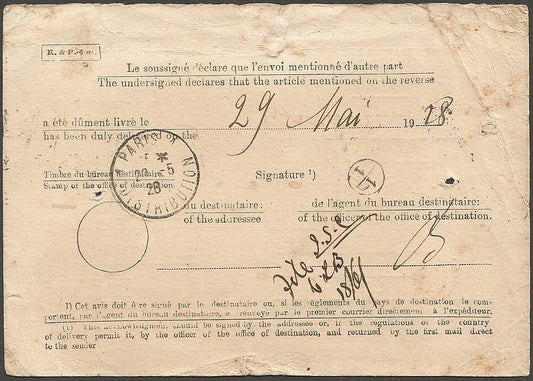 R. & P.-4 a.
Le soussigné déclare que l'envoi mentionné d'autre part
The undersigned declares that the article mentioned on the reverse
a été dûment livré le
has been duly delivered on the
29 Mai 1928
PARIS
DISTRIBUTION
5
28
Timbre du bureau destinataire.
Stamp of the office of destination.
Signature ¹)
du destinataire:
of the addressee
de l'agent du bureau destinataire:
of the officer of the office of destination.
File
B
1) Cet avis doit être signé par le destinataire ou, si les règlements du pays de destination le com-
portent, par l'agent du bureau destinataire, et renvoyé par le premier courrier directement à l'expéditeur.
(1) This acknowledgment should be signed by the addressee or, if the regulations of the country
of delivery permit it, by the officer of the office of destination, and returned by the first mail direct
to the sender